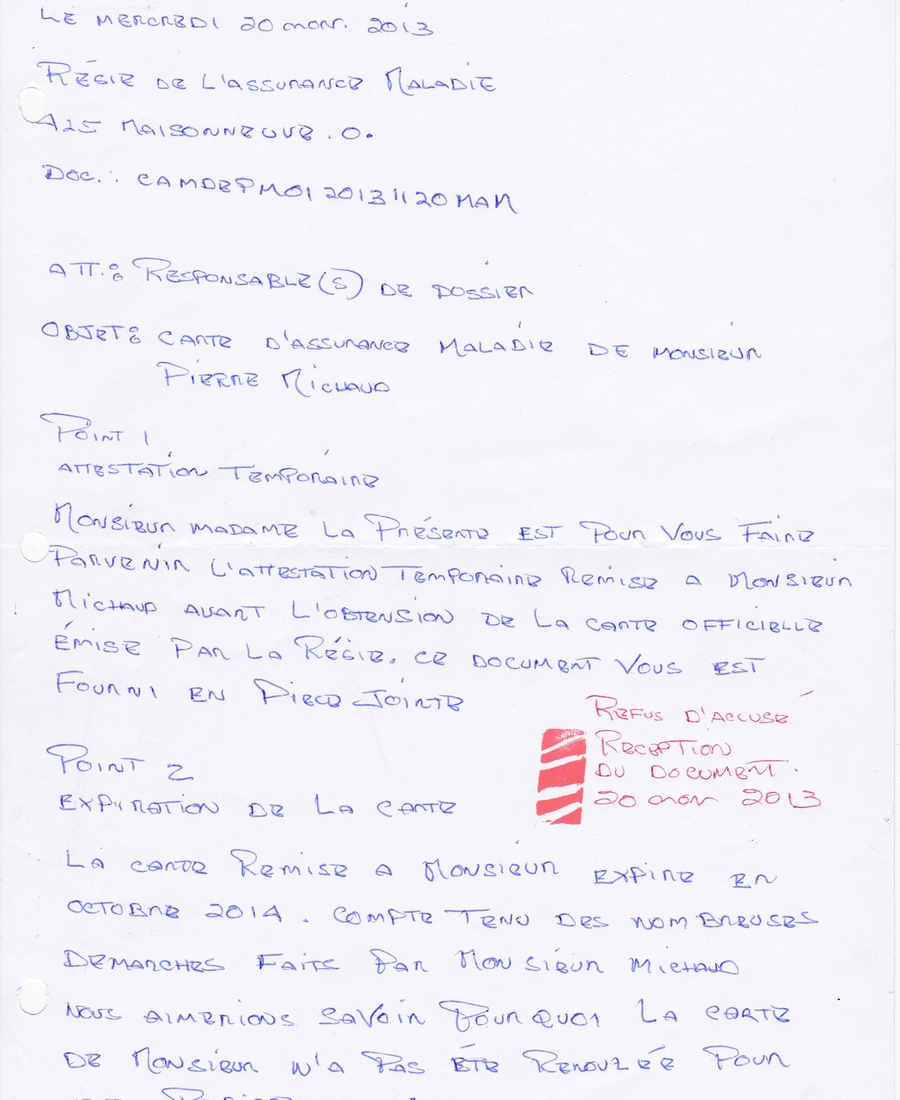 LE MERCREDI 20 nov. 2013
RÉGIE DE L'ASSURANCE MALADIE
425 MAISONNEUVE . O.
DOC.: CAMDEPM01 20131120MAR
ATT.: RESPONSABLE(S) DE DOSSIER
OBJET: CARTE D'ASSURANCE MALADIE DE MONSIEUR
PIERRE MICHAUD
POINT 1
ATTESTATION TEMPORAIRE
MONSIEUR MADAME LA PRÉSENTE EST POUR VOUS FAIRE
PARVENIR L'ATTESTATION TEMPORAIRE REMISE A MONSIEUR
MICHAUD AVANT L'OBTENSION DE LA CARTE OFFICIELLE
ÉMISE PAR LA RÉGIE. CE DOCUMENT VOUS EST
FOURNI EN PIECE JOINTE
REFUS D'ACCUSÉ
RECEPTION
DU DOCUMENT.
20 nov 2013
POINT 2
EXPIRATION DE LA CARTE
LA CARTE REMISE A MONSIEUR EXPIRE EN
OCTOBRE 2014 . COMPTE TENU DES NOMBREUSES
DEMARCHES FAITS PAR MONSIEUR MICHAUD
NOUS AIMERIONS SAVOIR POURQUOI LA CARTE
DE MONSIEUR N'A PAS ÉTÉ RENOUVELÉE POUR